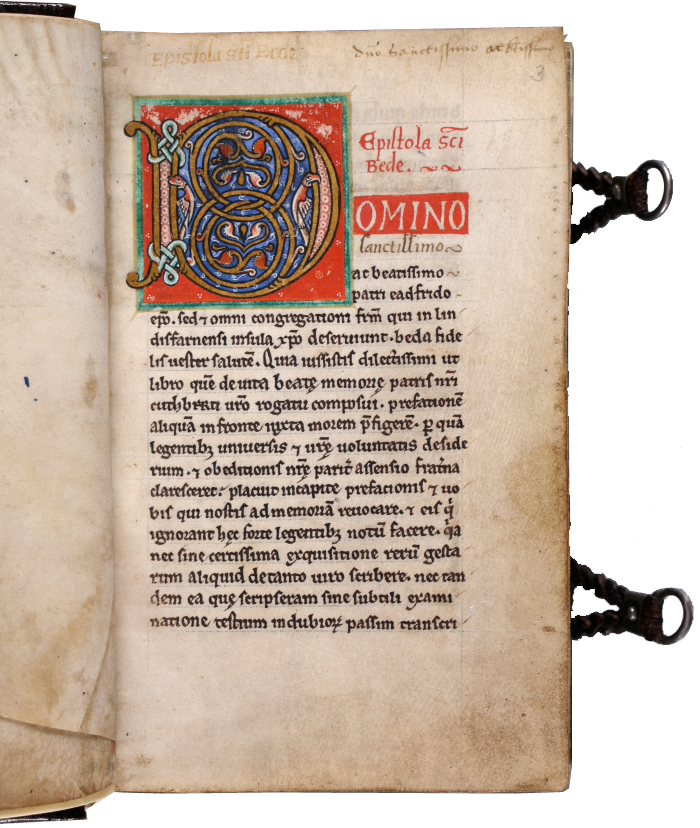 Epistola sti Bede
dnō Sanctissimo ac btissimo
3
Epistola Scī
Bede.
DOMINO
sanctissimo
ac beatissimo
patri eadfrido
ep̄o. sed ⁊ omni congregationi frm̄ qui in lin
disfarnensi insula xp̄o deseruiunt. beda fide
lis uester salutē. Quia iussistis dilectissimi ut
libro quē de uita beatę memorię patris nr̄i
cuthberti ur̄o rogatu composui. prefationē
aliquā in fronte iuxta morem p̄figerē. ꝑ quā
legentibꝫ uniuersis ⁊ ur̄ę uoluntatis deside
rium. ⁊ obeditionis nr̄ę parit̄ assensio frat̄na
claresceret: placuit in capite prefacionis ⁊ uo
bis qui nostis ad memoriā reuocare. ⁊ eis q̇
ignorant hęc forte legentibꝫ notū facere. q̇a
nec sine certissima exquisitione rerū gesta
rum aliquid de tanto uiro scribere. nec tan
dem ea quę scripseram sine subtili exami
natione testium indubioꝝ passim transcri